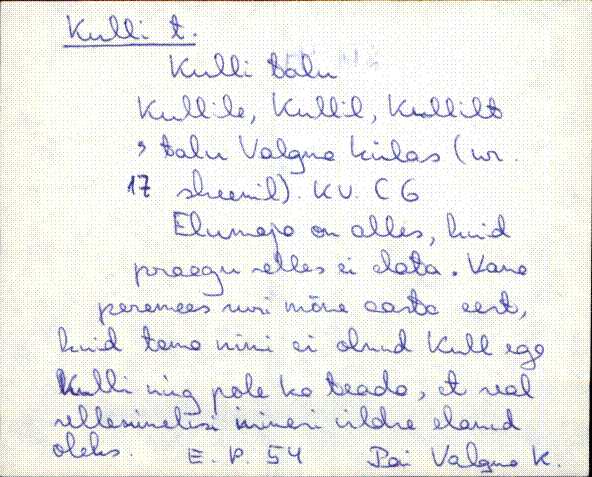 Kulli t.
Kulli talu
Kullile, Kullil, Kullilt
, talu Valgma külas (nr.
17 skeemil). KV. C6
Elumaja on alles, kuid
praegu selles ei elata. Vana
peremees suri mõne aasta eest,
kuid tema nimi ei olnud Kull ega
Kulli ning pole ka teada, et seal
sellenimelisi inimesi üldse elanud
oleks. E. P. 54 Pai Valgma k.